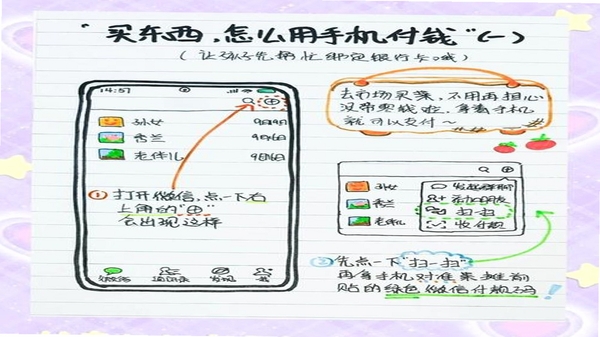 “买东西，怎么用手机付钱”(一)
(让孩子先帮忙绑定银行卡哦)
14:57
孙女 9月9日
秀兰 9月6日
老伴儿 9月6日
① 打开微信，点一下右
上角的“⊕”
会出现这样
微信 通讯录 发现 我
去市场买菜，不用再担心
没带零钱啦，拿着手机
就可以支付～
孙女
秀兰
老伴儿
发起群聊
添加朋友
扫一扫
收付款
② 先点一下“扫一扫”
再拿手机对准菜摊前
贴的绿色微信付款码！